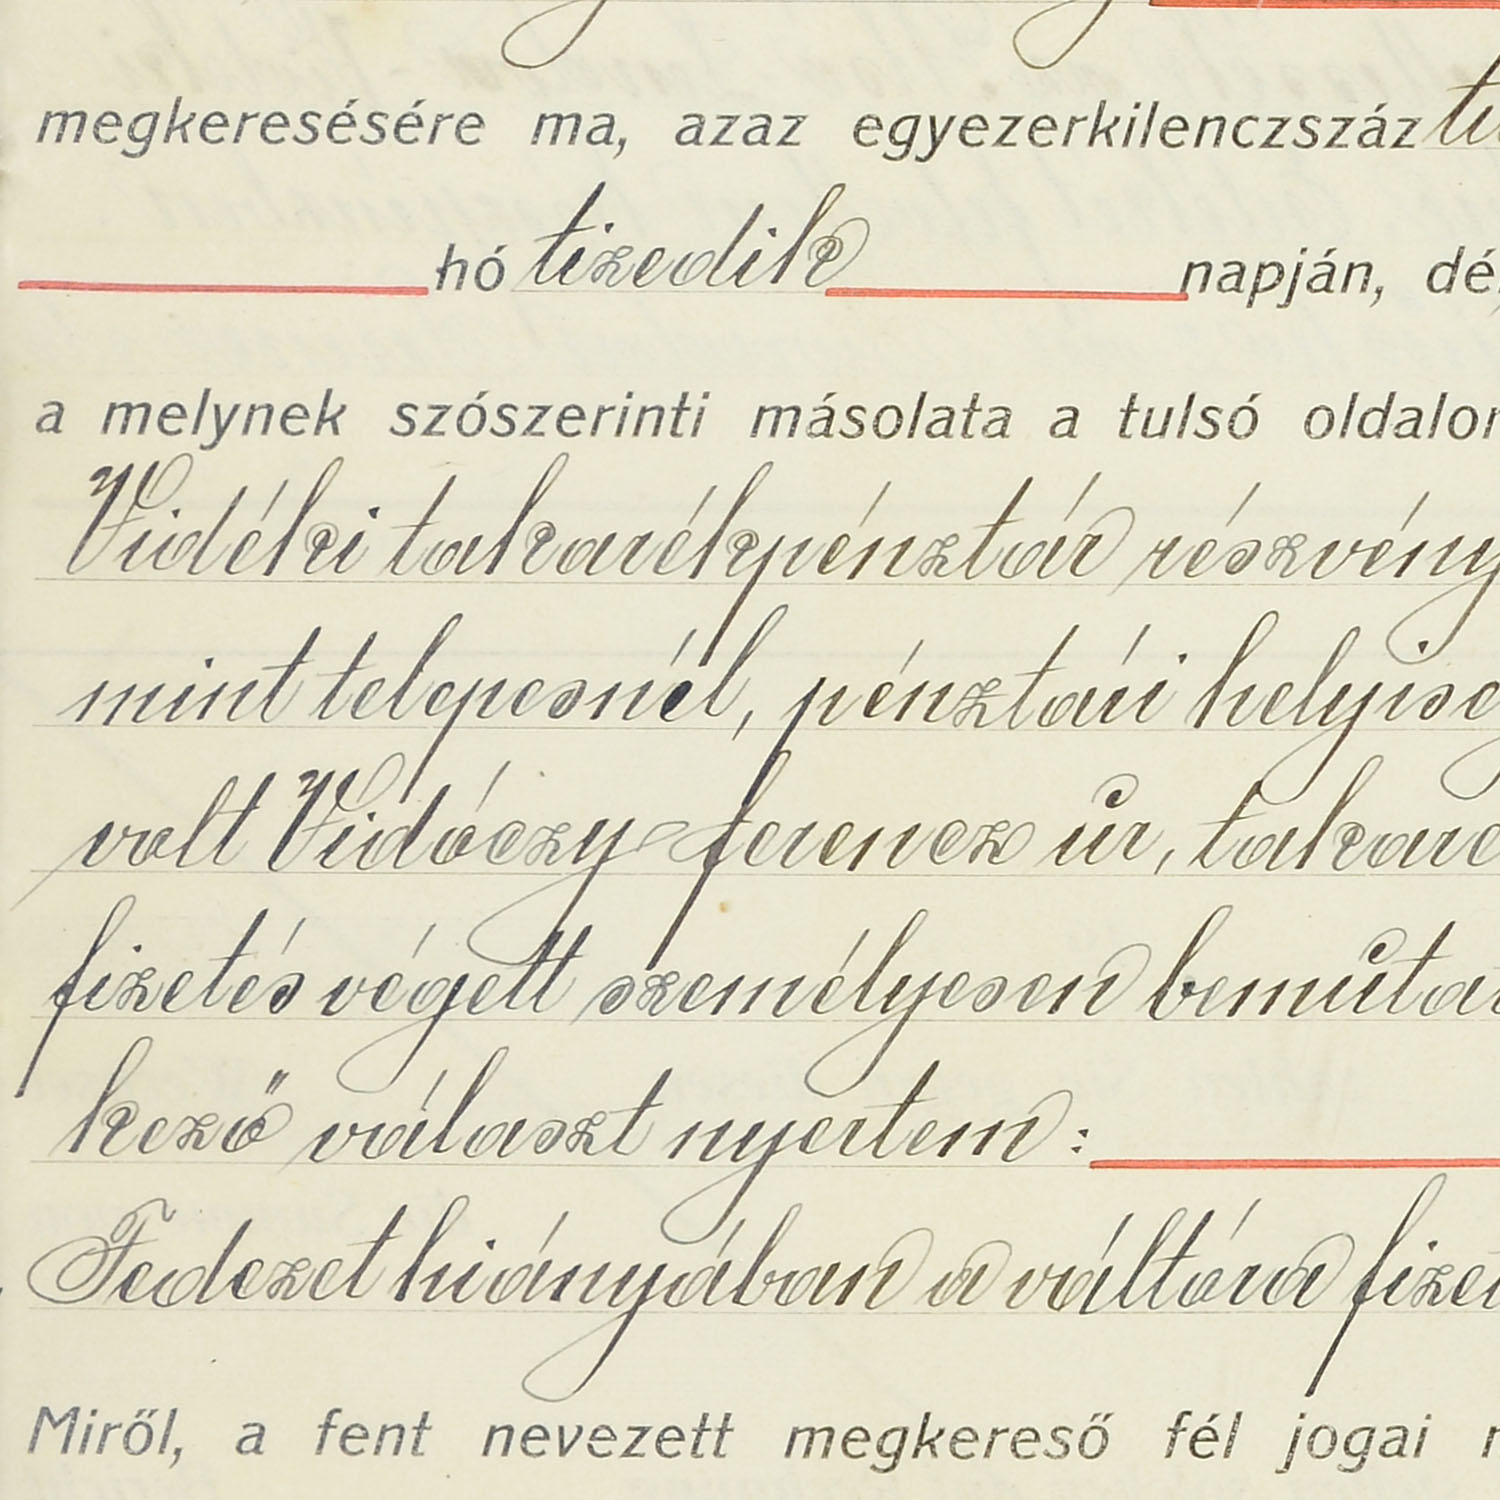 megkeresésére ma, azaz egyezerkilenczszáz
hó tizedik napján,
a melynek szószerinti másolata a tulsó
Vidéki takarékpénztár részvény
mint telepesnél, pénztári helyisé
volt Vidóczy ferencz úr,
fizetés végett személyesen
kező választ nyertem:
Fedezet hiányában a váltóra
Miről, a fent nevezett megkereső fél jogai